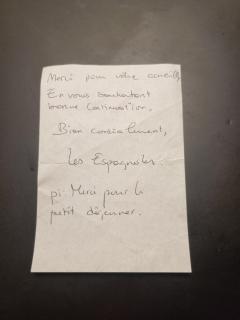 Merci pour votre accueil,
En vous souhaitant
bonne continuation.
Bien cordialement,
Les Espagnoles.
ps: Merci pour le
petit déjeuner.